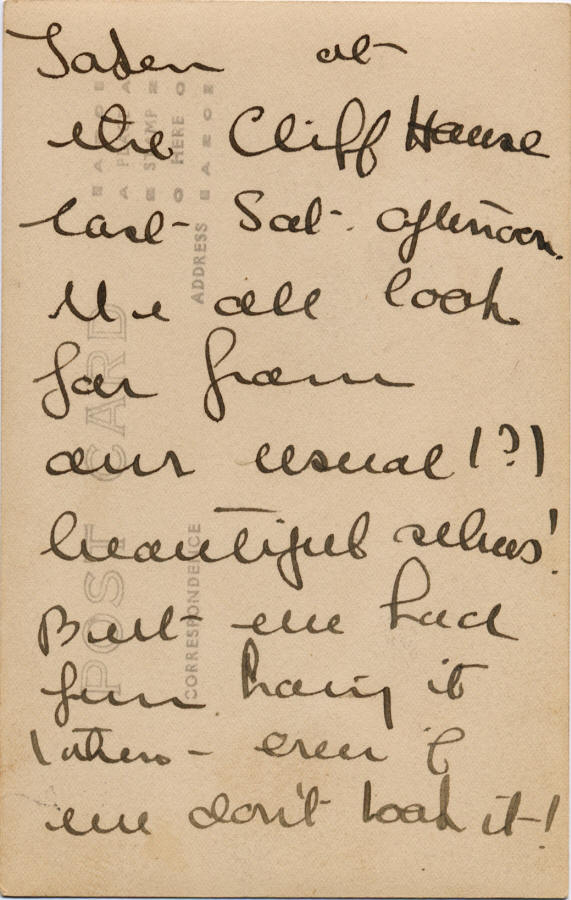 Taken at
the Cliff House
last Sat. afternoon.
We all look
far from
our usual (?)
beautiful selves!
But we had
fun having it
taken - even if
we don't look it!
POST CARD
CORRESPONDENCE
ADDRESS
PLACE
STAMP
HERE